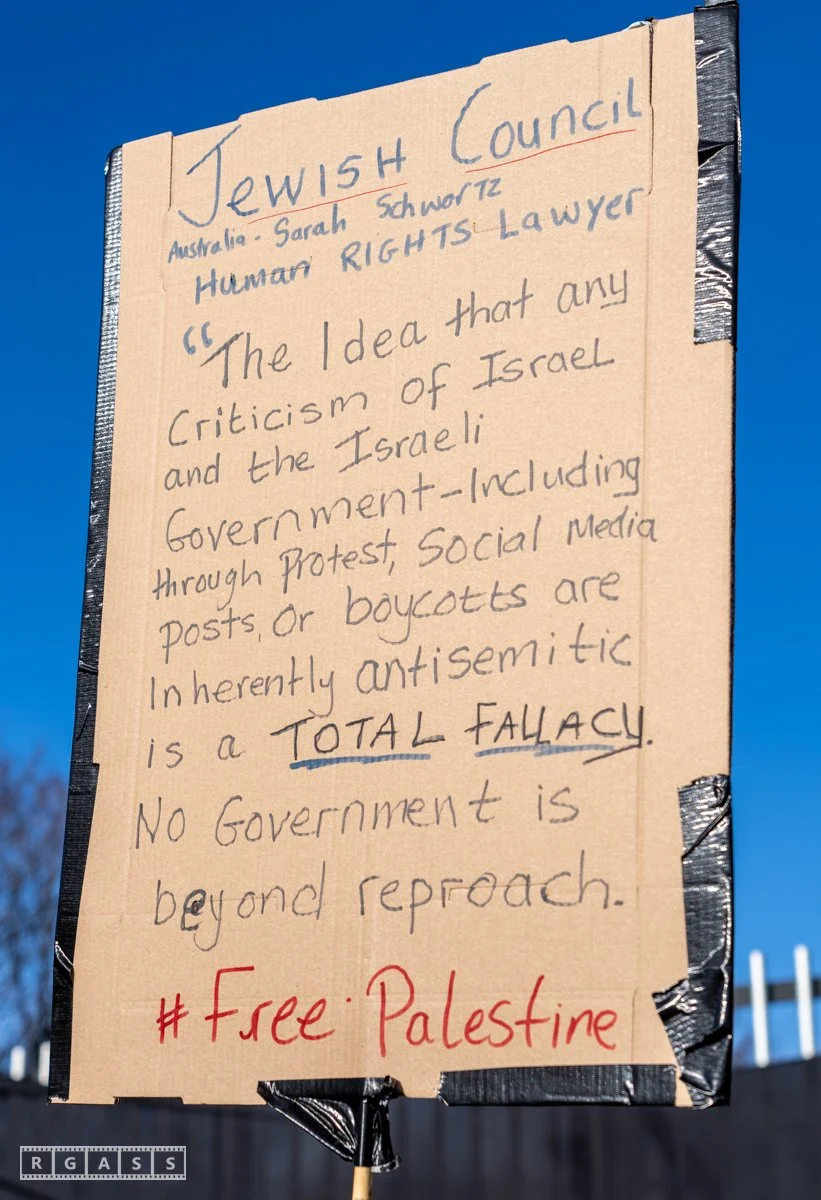 Jewish Council
Australia - Sarah Schwartz
Human RIGHTS Lawyer
“The Idea that any
Criticism of Israel
and the Israeli
Government-Including
through Protest, Social Media
posts, Or boycotts are
Inherently antisemitic
is a TOTAL FALLACY.
No Government is
beyond reproach.
#Free Palestine
RGASS